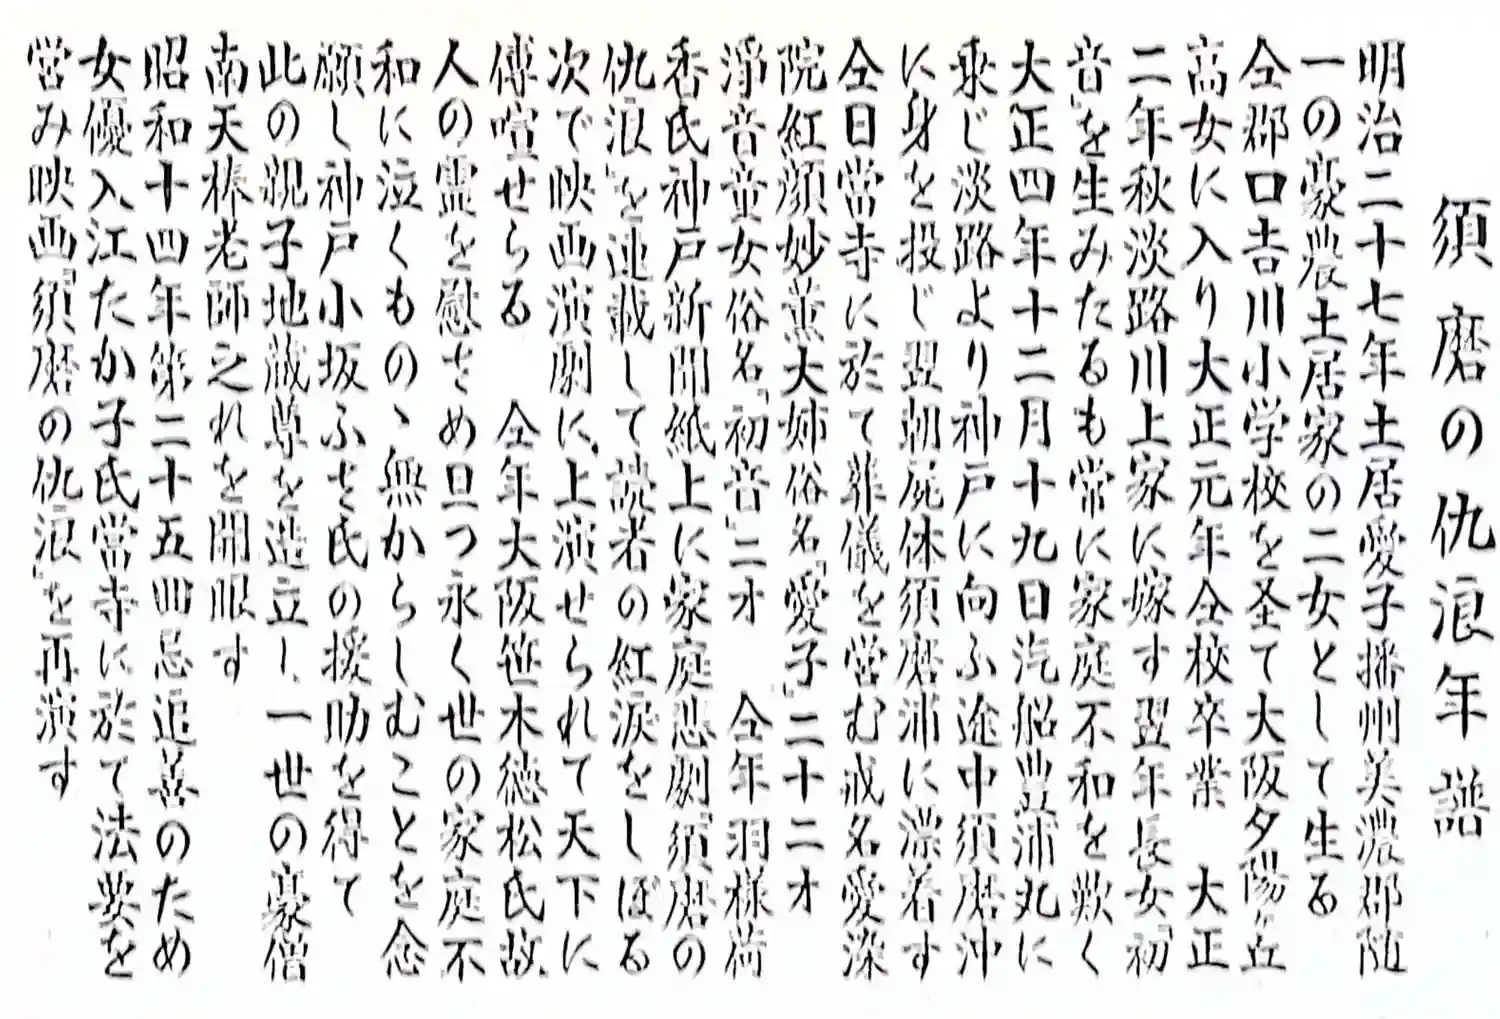 須磨の仇浪年譜
明治二十七年土居愛子播州美濃郡随
一の豪農土居家の二女として生る
仝郡口吉川小学校を圣て大阪夕陽ヶ丘
高女に入り大正元年仝校卒業　大正
二年秋淡路川上家に嫁す翌年長女「初
音」を生みたるも常に家庭不和を歎く
大正四年十二月十九日汽船豊浦丸に
乗じ淡路より神戸に向ふ途中須磨沖
に身を投じ翌朝屍体須磨浦に漂着す
仝日當寺に於て葬儀を営む戒名愛染
院紅顔妙薫大姉俗名「愛子」二十二才
淨音童女俗名「初音」二才　仝年羽様荷
香氏神戸新聞紙上に家庭悲劇「須磨の
仇浪」を連載して読者の紅涙をしぼる
次で映画演劇に上演せられて天下に
傳喧せらる　仝年大阪笹木徳松氏故
人の霊を慰さめ旦つ永く世の家庭不
和に泣くものゝ無からしむことを念
願し神戸小坂ふさ氏の援助を得て
此の親子地蔵尊を造立し一世の豪僧
南天棒老師之れを開眼す
昭和十四年第二十五回忌追善のため
女優入江たか子氏當寺に於て法要を
営み映画「須磨の仇浪」を再演す